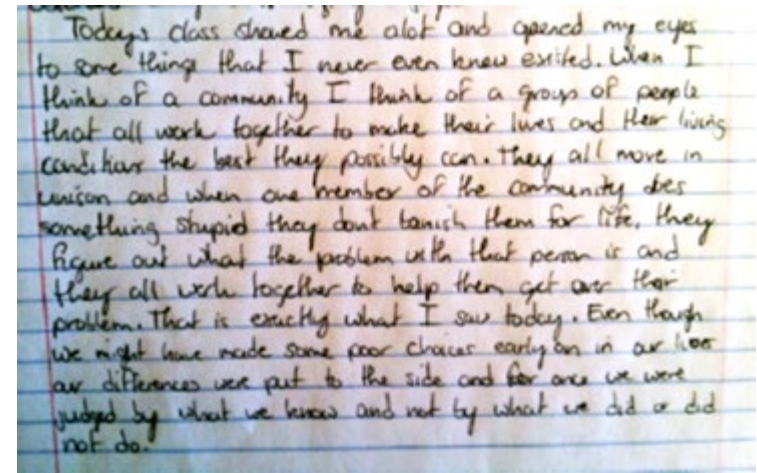 Todays class showed me alot and opened my eyes
to some things that I never even knew exited. When I
think of a community I think of a group of people
that all work together to make their lives and their living
conditions the best they possibly can. They all move in
unison and when one member of the community does
something stupid they dont banish them for life, they
figure out what the problem with that person is and
they all work together to help them get over their
problem. That is exactly what I saw today. Even though
we might have made some poor choices early on in our lives
our differences were put to the side and for once we were
judged by what we know and not by what we did or did
not do.